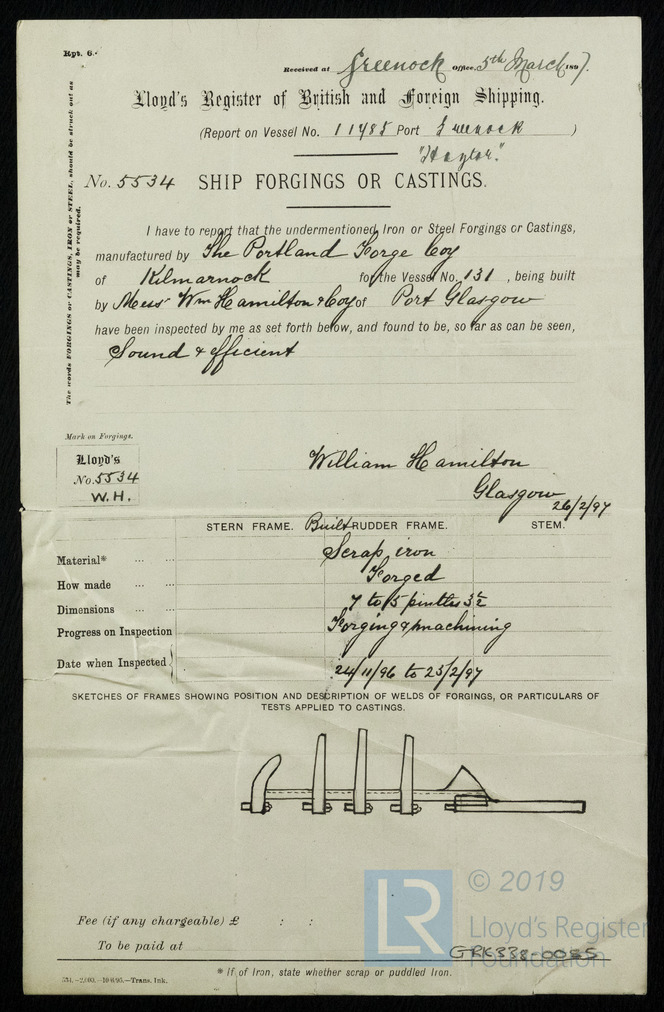 Rpt. 6.
Received at Greenock Office, 5th March 1897.
Lloyd's Register of British and Foreign Shipping.
(Report on Vessel No. 11485 Port Greenock )
No. 5534 SHIP FORGINGS OR CASTINGS.
The words FORGINGS or CASTINGS, IRON or STEEL, should be struck out as
may be required.
I have to report that the undermentioned Iron or Steel Forgings or Castings,
manufactured by The Portland Forge Coy
of Kilmarnock for the Vessel No. 131 , being built
by Messrs Wm Hamilton & Coy of Port Glasgow
have been inspected by me as set forth below, and found to be, so far as can be seen,
Sound & efficient
Mark on Forgings.
Lloyd's
No. 5534
W.H.
William Hamilton
Glasgow
26/2/97
STERN FRAME. Built RUDDER FRAME. STEM.
Material* ... ... Scrap iron
How made ... ... Forged
Dimensions ... ... 7 to 5 pintles 3½
Progress on Inspection Forging & machining
Date when Inspected 24/11/96 to 23/2/97
SKETCHES OF FRAMES SHOWING POSITION AND DESCRIPTION OF WELDS OF FORGINGS, OR PARTICULARS OF
TESTS APPLIED TO CASTINGS.
Fee (if any chargeable) £ : :
To be paid at
* If of Iron, state whether scrap or puddled Iron.
—Trans. Ink.
LR
© 2019
Lloyd's Register
Foundation
GRK338-0055